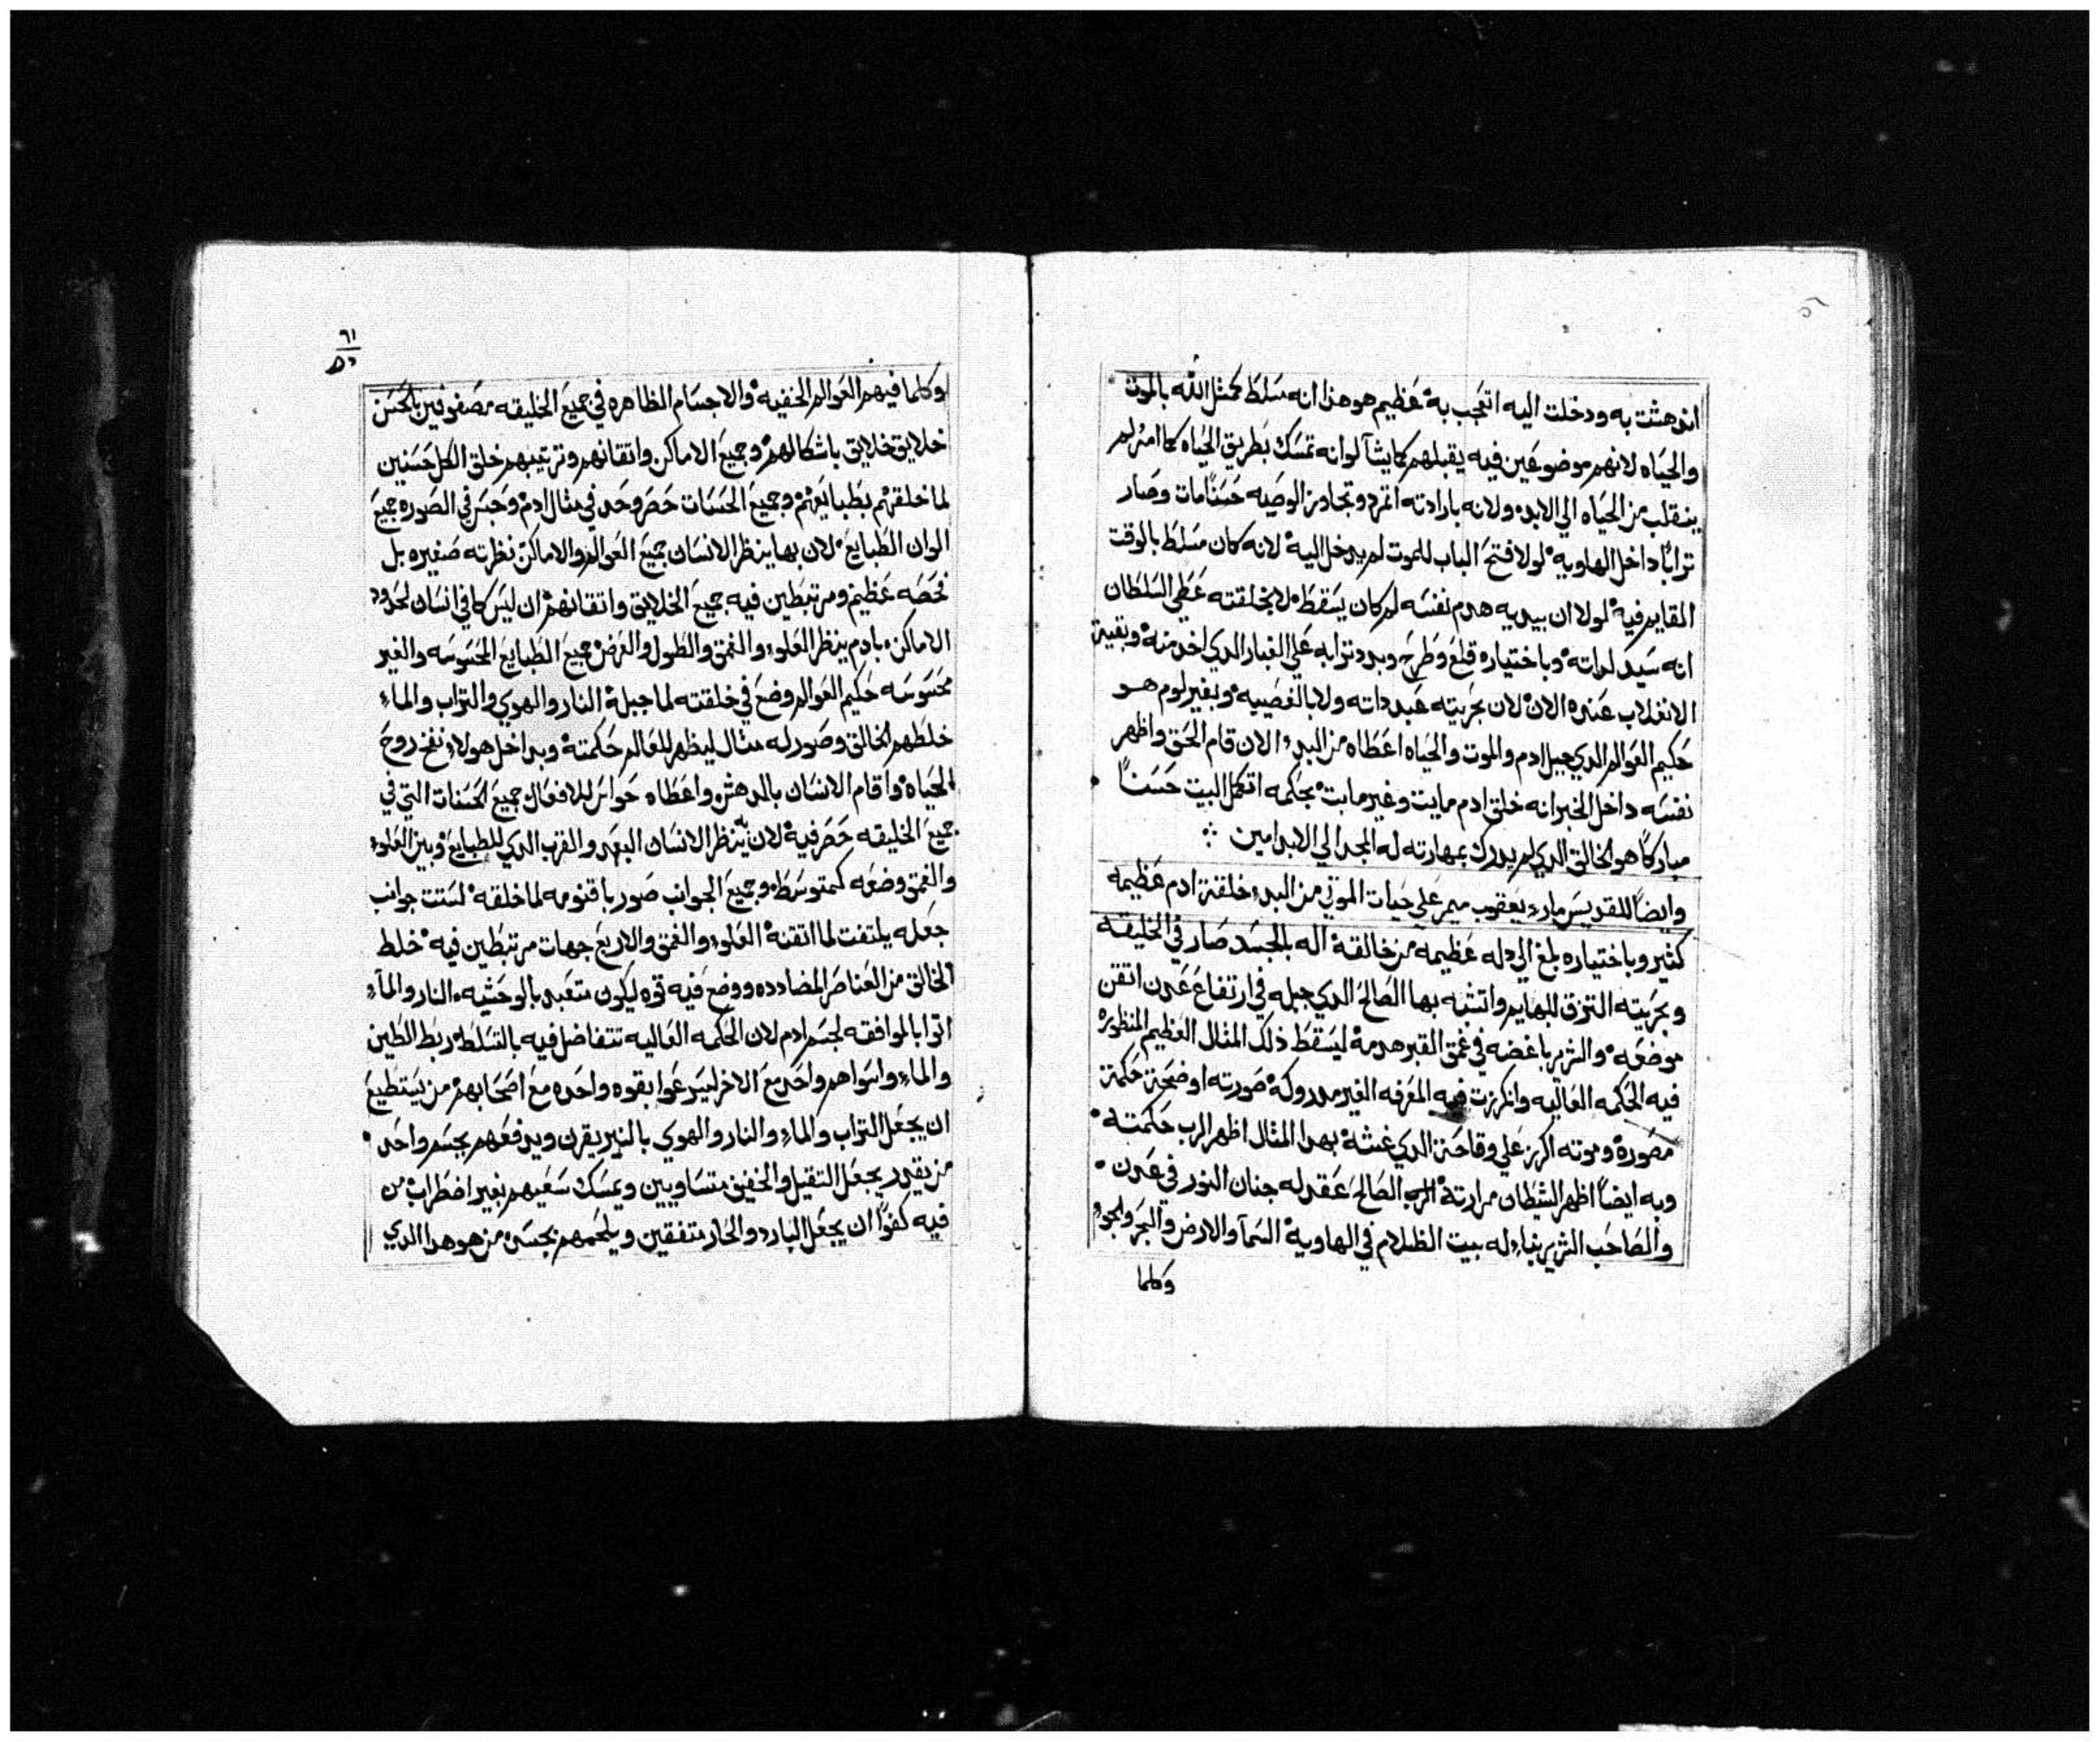 اندهشت به ودخلت اليه اتعجب به عظيم هو هذا انه سلط كمثل الله بالموت
والحياه لانهم موضوعين فيه يقبلهم كما يشآ لو انه تمسك بطريق الحياه كما امر لم
ينقلب من الحياه الي الابد ولانه بارادته اتمرد وتجاوز الوصيه حسنًا مات وصار
ترابًا داخل الهاويه لولا فتح الباب للموت لم يدخل اليه لانه كان مسلط بالوقت
القايم فيه لولا ان بيديه هدم نفسه لم كان يسقط لا بخلقته عطي السلطان
انه سيد لداته وباختياره قلع وطرح وبدد ترابه علي الغبار الدي اخد منه وبقيت
الانغلاب عنده الان لان بحريته عبد داته ولا بالغصيبه وبغير لوم هو
حكيم العوالم الدي جبل ادم والموت والحياه اعطاه من البدء الان قام الحق واظهر
نفسه داخل الخبر انه خلق ادم مايت وغير مايت بحكمه اتكمل البيت حسنًا
مباركًا هو الخالق الدي لم يدرك بمهارته له المجد الي الابد امين
وايضًا للقديس مار يعقوب ميمر علي حيات الموتي من البدء خلقة ادم عظيمه
كثير وباختياره بلغ الي دله عظيمه من خالقه اله بالجسد صار في الخليقه
وبحريته التزق للبهايم واتشبه بها الصالح الدي جبله في ارتفاع عدن اتقن
موضعه والشرير باغضه في غمق القبر هدمه ليسقط ذلك المثال العظيم المنظوره
فيه الحكمه العاليه وانكرزت فيه المعرفه الغير مدروكه صورته اوضحت حكمة
مصوره وموته اكرز علي وقاحة الدي غشه بهدا المثال اظهر الرب حكمته
وبه ايضًا اظهر الشيطان مرارته الرب الصالح عقد له جنان النور في عدن
والصاحب الشرير بناء له بيت الظلام في الهاويه السمآ والارض والبحر والجو
وكلما
٦١
وكلما فيهم العوالم الخفيه والاجسام الظاهره في جميع الخليقه مصفوفين بالحسن
خلايق خلايق باشكالهم وجميع الاماكن واتقانهم وترتيبهم خلق الكل حسنين
لما خلقهم بطبايعهم وجميع الحسنات حصر وحد في مثال ادم وحبس في الصوره جميع
الوان الطبايع لان بها ينظر الانسان جميع العوالم والاماكن نظرته صغيره بل
فحصه عظيم ومرتبطين فيه جميع الخلايق واتقانهم ان ليس كما في انسان لحدود
الاماكن بادم ينظر العلو والغمق والطول والعرض جميع الطبايع المحسوسه والغير
محسوسه حكيم العوالم وضع في خلقته لما جبله النار والهوي والتراب والماء
خلطهم الخالق وصور له مثال ليظهر للعالم حكمته وبداخل هولاء نفخ روح
الحياه واقام الانسان بالدهش واعطاه حواس للافعال جميع الحسنات التي في
جميع الخليقه حصر فيه لان ينظر الانسان البعد والقرب الدي للطبايع وبين العلو
والغمق وضعه كمتوسط وجميع الجوانب صور باقنومه لما خلقه لستت جوانب
جعله يلتفت لما اتقنه العلو والغمق والاربع جهات مرتبطين فيه خلط
الخالق من العناصر المضادده ووضع فيه قوه ليكون متعبد بالوحشيه النار والمآء
اتوا بالموافقه لجسم ادم لان الحكمه العاليه تتفاضل فيه بالتسلط ربط الطين
والماء واسواهم واحد مع الاخر ليس عوا بقوه واحده مع اصحابهم من يستطيع
ان يجعل التراب والماء والنار والهوي بالنير يقرن ويدفعهم بجسم واحد
من يقدر يجعل التقيل والخفيف متساويين ويمسك سعيهم بغير اضطراب من
فيه كفوًا ان يجعل البارد والحار متفقين ويلحمهم بجسد من هو هدا الدي